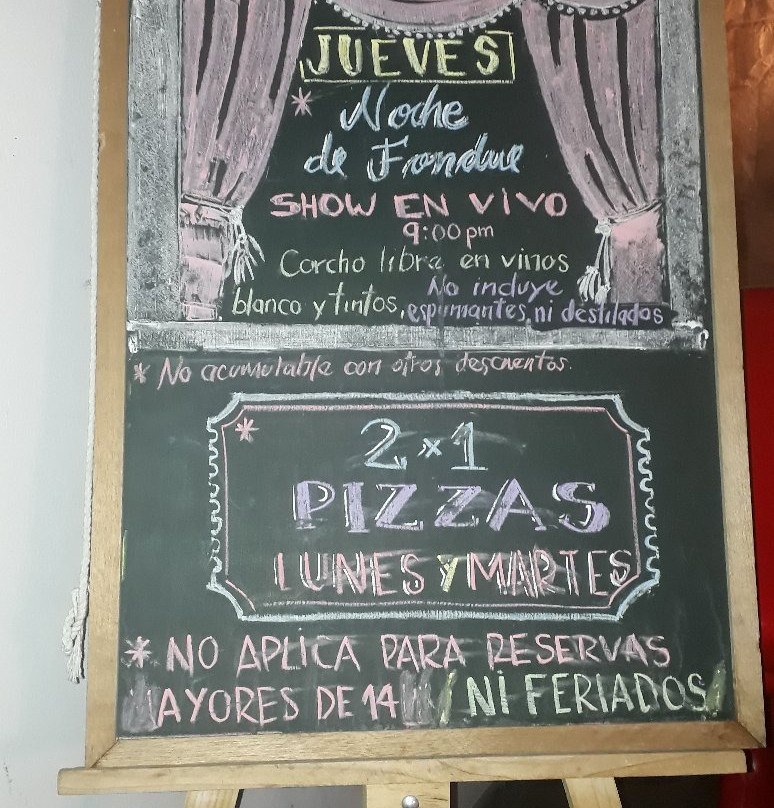 JUEVES
* Noche
de Fondue
SHOW EN VIVO
9:00 pm
Corcho libre en vinos
blanco y tintos, No incluye
espumantes ni destilados
* No acumulable con otros descuentos.
* 2x1
PIZZAS
LUNES Y MARTES
* NO APLICA PARA RESERVAS
MAYORES DE 14 Y NI FERIADOS